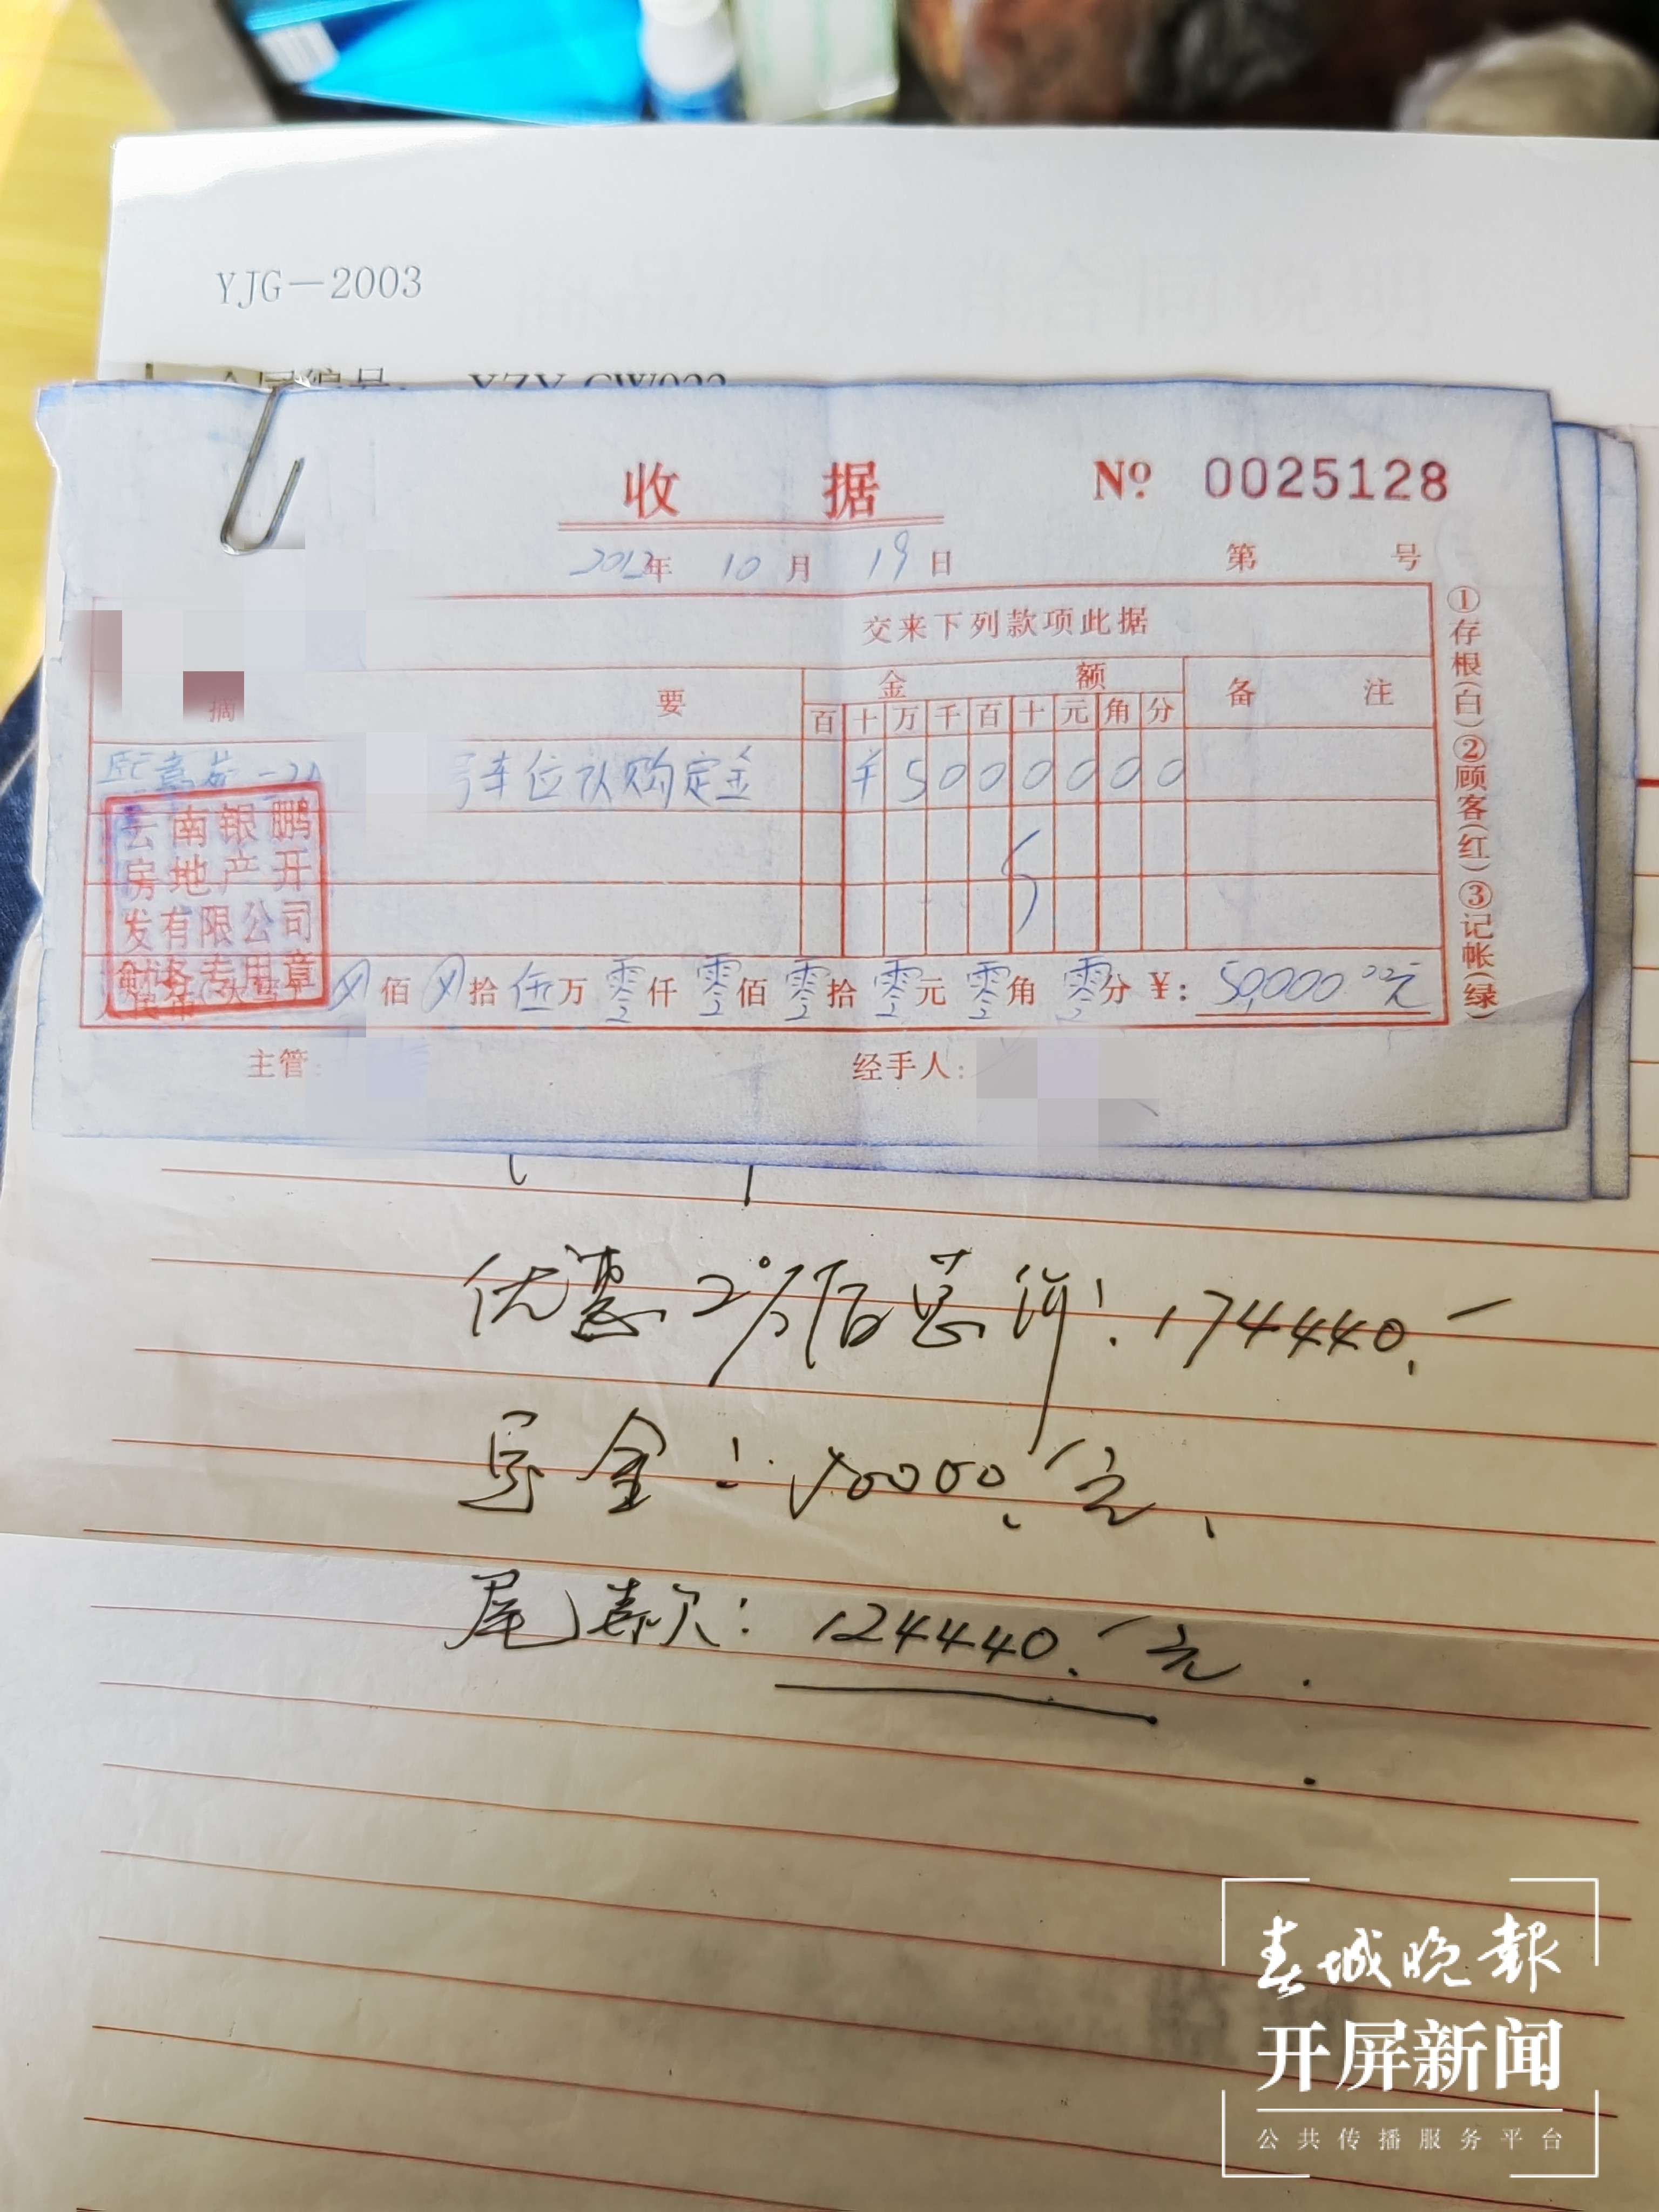 YJG-2003
合同编号 YZY-CW022
收据
№ 0025128
2012年 10月 19日
第 号
交来下列款项此据
摘 要
金 额
备 注
百 十 万 千 百 十 元 角 分
熙嘉苑-21
号车位认购定金
¥5000000
云南银鹏
房地产开
发有限公司
财务专用章
佰 拾 伍万 零仟 零佰 零拾 零元 零角 零分 ¥: 50,000.00元
主管:
经手人:
①存根(白)②顾客(红)③记帐(绿)
优惠2%后总价: 174440.-
定金: 50000.-元.
尾款: 124440.-元.
春城晚報
开屏新闻
公共传播服务平台